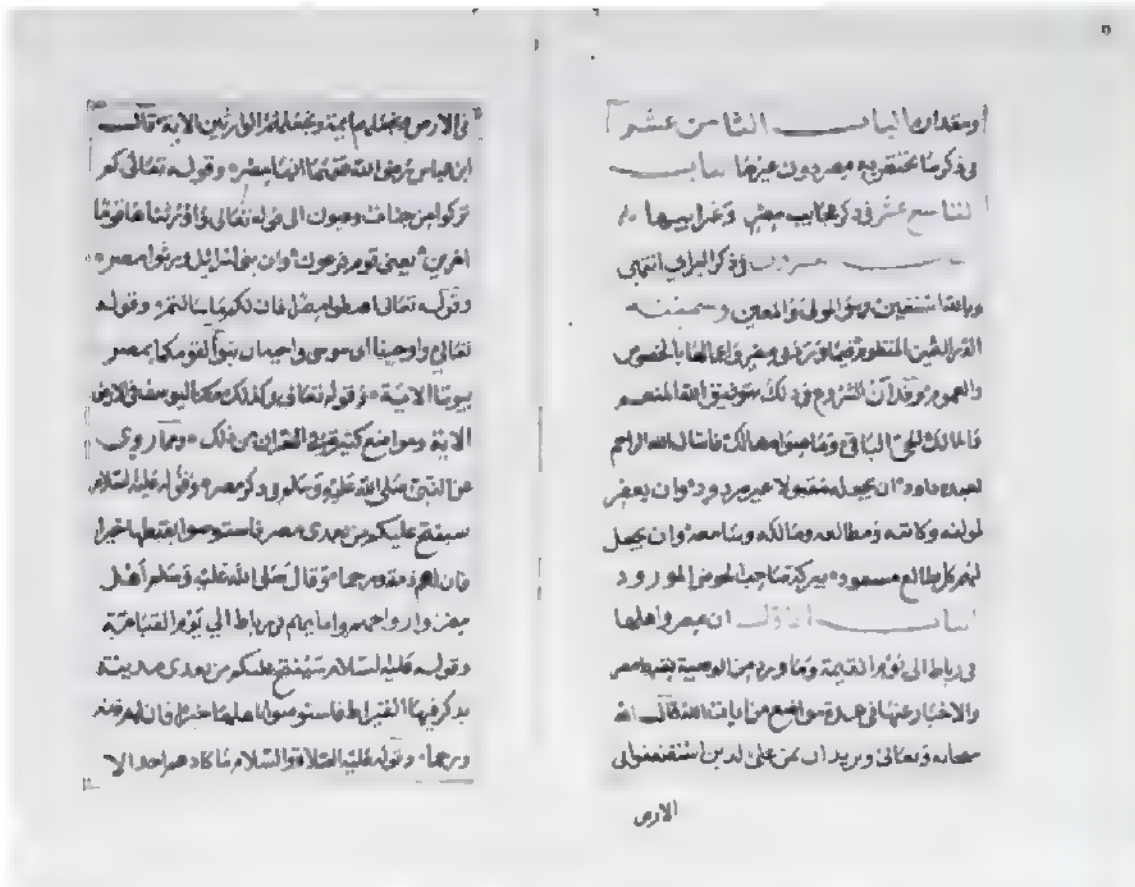 الباب الثامن عشر
في ذكر ما تختص به مصر دون غيرها الباب
التاسع عشر في ذكر عجايب مصر وغرايبها
في ذكر انتهى
وبالله استعين وهو المولى والمعين وسميته
الدر الثمين المنظوم فيما ورد في مصر واعمالها بالخصوص
والعموم وقد آن الشروع في ذلك بتوفيق الله المنعم
المالك الحي الباقي وما سواه هالك فاسال الله الراحم
لعبده داود ان يجعله مقبولا غير مردود وان يغفر
لمولفه وكاتبه ومطالعه ومالكه وسامعه وان يجعل
لهم كل طالع مسعود ببركة صاحب الحوض المورود
الباب الاول ان مصر واهلها
في رباط الى يوم القيمة وما ورد من الوصية بقبط مصر
والاخبار عنها في عدة مواضع من ايات الله قال الله
سبحانه وتعالى ونريد ان نمن على الذين استضعفوا في
الارض
في الارض ونجعلهم ايمة ونجعلهم الوارثين الاية قال
ابن عباس رضي الله عنهما انها مصر وقوله تعالى كم
تركوا من جنات وعيون الى قوله تعالى واورثناها قوما
اخرين يعني قوم فرعون وان بني اسرائيل ورثوا مصر
وقوله تعالى اهبطوا مصرا فان لكم ما سالتم وقوله
تعالى واوحينا الى موسى واخيه ان تبوآ لقومكما بمصر
بيوتا الاية وقوله تعالى وكذلك مكنا ليوسف في الارض
الاية ومواضع كثيرة في القران من ذلك ومما روي
عن النبي صلى الله عليه وسلم في ذكر مصر وقوله عليه السلام
ستفتح عليكم من بعدي مصر فاستوصوا بقبطها خيرا
فان لهم ذمة ورحما وقال صلى الله عليه وسلم اهل
مصر وازواجهم في رباط الي يوم القيامة
وقوله عليه السلام ستفتح عليكم من بعدي مدينة
يذكر فيها القيراط فاستوصوا باهلها خيرا فان لهم ذمة
ورحما وقوله عليه الصلاة والسلام ما كادهم احد الا